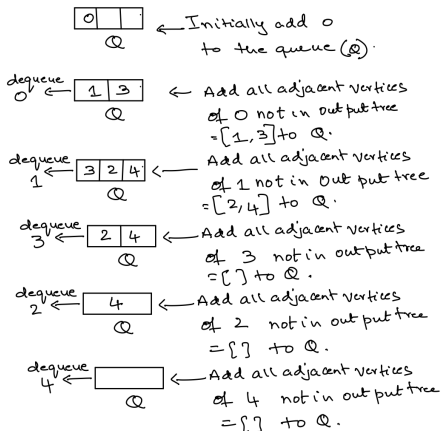 0
Q
← Initially add 0
to the queue (Q).
dequeue
0 ← 1 3 ← Add all adjacent vertices
Q
of 0 not in output tree
=[1,3] to Q.
dequeue
1 ← 3 2 4 ← Add all adjacent vertices
Q
of 1 not in output tree
=[2,4] to Q.
dequeue
3 ← 2 4 ← Add all adjacent vertices
Q
of 3 not in output tree
=[ ] to Q.
dequeue
2 ← 4 ← Add all adjacent vertices
Q
of 2 not in output tree
=[] to Q.
dequeue
4 ← ← Add all adjacent vertices
Q
of 4 not in output tree
=[] to Q.